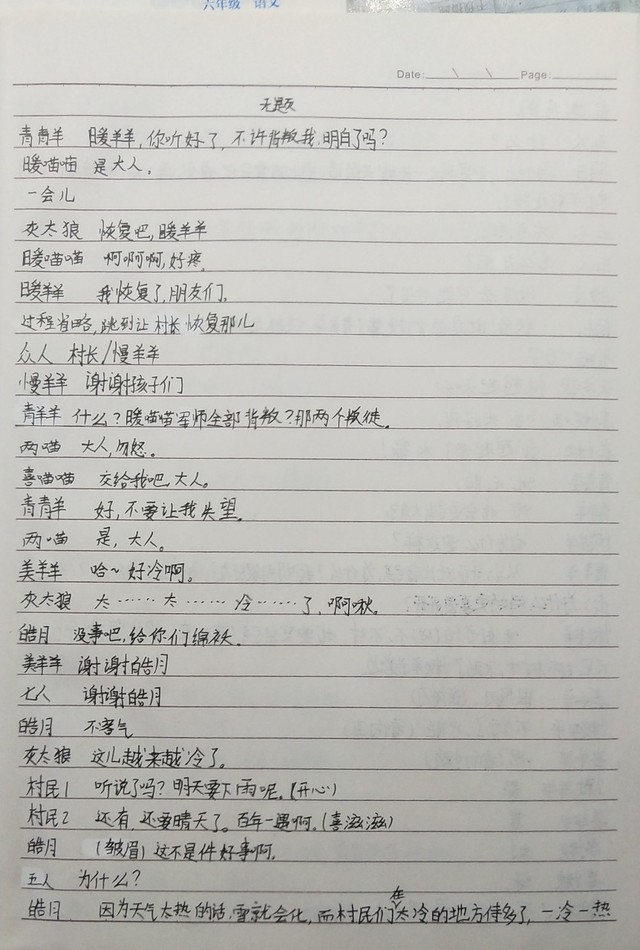 六年级 语文
Date: \ \ Page:
无题
青青羊 暖羊羊,你听好了,不许背叛我,明白了吗?
暖喵喵 是大人。
一会儿
灰太狼 恢复吧,暖羊羊
暖喵喵 啊啊啊,好疼,
暖羊羊 我恢复了,朋友们。
过程省略,跳到让村长恢复那儿
众人 村长/慢羊羊
慢羊羊 谢谢孩子们
青羊羊 什么?暖喵喵军师全部背叛?那两个叛徒。
两喵 大人,勿怒。
喜喵喵 交给我吧,大人。
青青羊 好,不要让我失望。
两喵 是,大人。
美羊羊 哈~好冷啊。
灰太狼 太……太……冷……了,啊啾。
皓月 没事吧,给你们绵袄。
美羊羊 谢谢皓月
七人 谢谢皓月
皓月 不客气
灰太狼 这儿越来越冷了。
村民1 听说了吗?明天要下雨呢。(开心)
村民2 还有,还要晴天了。百年一遇啊。(喜滋滋)
皓月 (皱眉)这不是件好事啊。
五人 为什么?
皓月 因为天气太热的话,雪就会化,而村民们在太冷的地方待多了,一冷一热